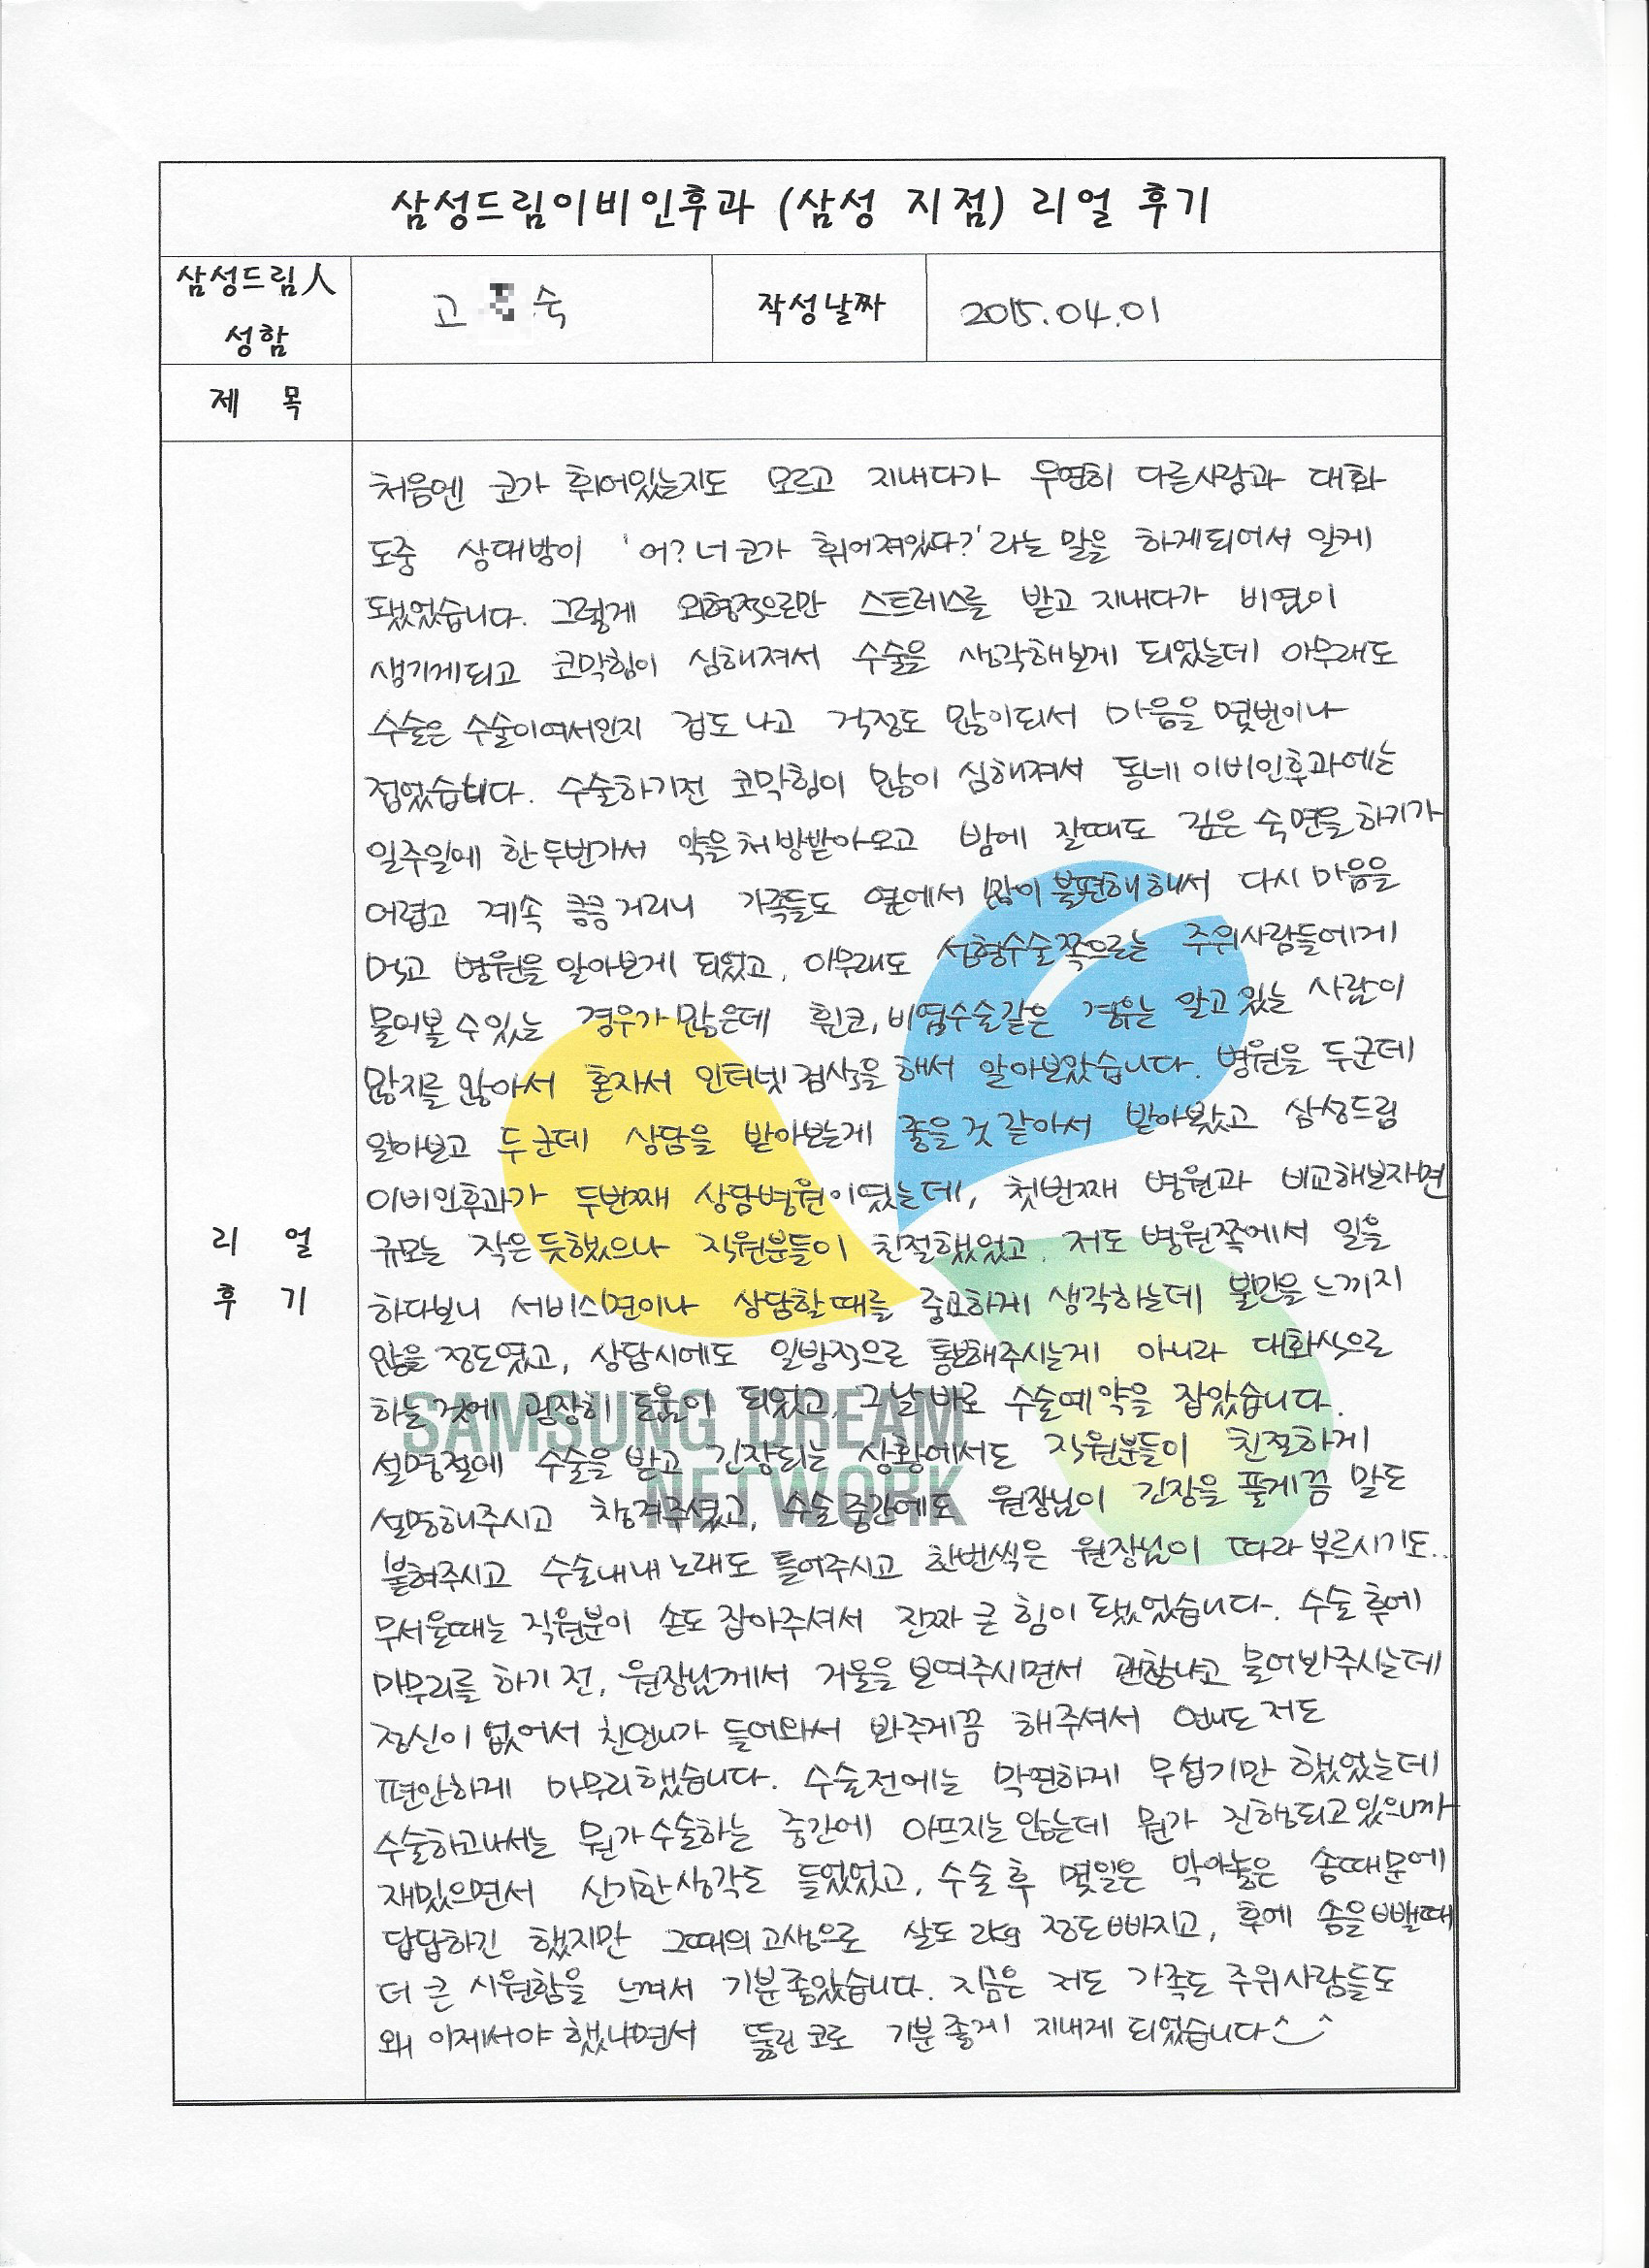 삼성드림이비인후과 (삼성 지점) 리얼 후기
삼성드림人
성함
고 숙
작성날짜
2015.04.01
제 목
처음엔 코가 휘어있는지도 모르고 지내다가 우연히 다른사람과 대화
도중 상대방이 '어? 너 코가 휘어져있다?' 라는 말을 하게되어서 알게
됐었습니다. 그렇게 외형적으로만 스트레스를 받고 지내다가 비염이
생기게되고 코막힘이 심해져서 수술을 생각해보게 되었는데 아무래도
수술은 수술이여서인지 겁도 나고 걱정도 많이되서 마음을 몇번이나
접었습니다. 수술하기전 코막힘이 많이 심해져서 동네 이비인후과에는
일주일에 한두번가서 약을 처방받아오고 밤에 잘때도 깊은 숙면을 하기가
어렵고 계속 킁킁거리니 가족들도 옆에서 많이 불편해해서 다시 마음을
먹고 병원을 알아보게 되었고, 아무래도 성형수술쪽으로는 주위사람들에게
물어볼 수 있는 경우가 많은데 휜코, 비염수술같은 경우는 알고 있는 사람이
많지를 않아서 혼자서 인터넷 검색을 해서 알아보았습니다. 병원을 두군데
알아보고 두군데 상담을 받아보는게 좋을 것 같아서 받아봤고 삼성드림
이비인후과가 두번째 상담병원이였는데, 첫번째 병원과 비교해보자면
규모는 작은 듯했으나 직원분들이 친절했었고, 저도 병원쪽에서 일을
하다보니 서비스면이나 상담할때를 중요하게 생각하는데 불만을 느끼지
않을 정도였고, 상담시에도 일방적으로 통보해주시는게 아니라 대화식으로
하는 것에 굉장히 도움이 되었고, 그날 바로 수술예약을 잡았습니다.
설명절에 수술을 받고 긴장되는 상황에서도 직원분들이 친절하게
설명해주시고 챙겨주셨고, 수술 중간에도 원장님이 긴장을 풀게끔 말도
붙혀주시고 수술내내 노래도 틀어주시고 한번씩은 원장님이 따라 부르시기도..
무서울때는 직원분이 손도 잡아주셔서 진짜 큰 힘이 됐었습니다. 수술 후에
마무리를 하기 전, 원장님께서 거울을 보여주시면서 괜찮냐고 물어봐주시는데
정신이 없어서 친언니가 들어와서 봐주게끔 해주셔서 언니도 저도
편안하게 마무리했습니다. 수술전에는 막연하게 무섭기만 했었는데
수술하고나서는 뭔가 수술하는 중간에 아프지는 않는데 뭔가 진행되고 있으니까
재밌으면서 신기한 생각도 들었었고, 수술 후 몇일은 막아놓은 솜때문에
답답하긴 했지만 그때의 고생으로 살도 2kg 정도 빠지고, 후에 솜을 뺄때
더 큰 시원함을 느껴서 기분좋았습니다. 지금은 저도 가족도 주위사람들도
왜 이제서야 했냐면서 뚫린 코로 기분 좋게 지내게 되었습니다^_^
리 얼
후 기
SAMSUNG DREAM
NETWORK